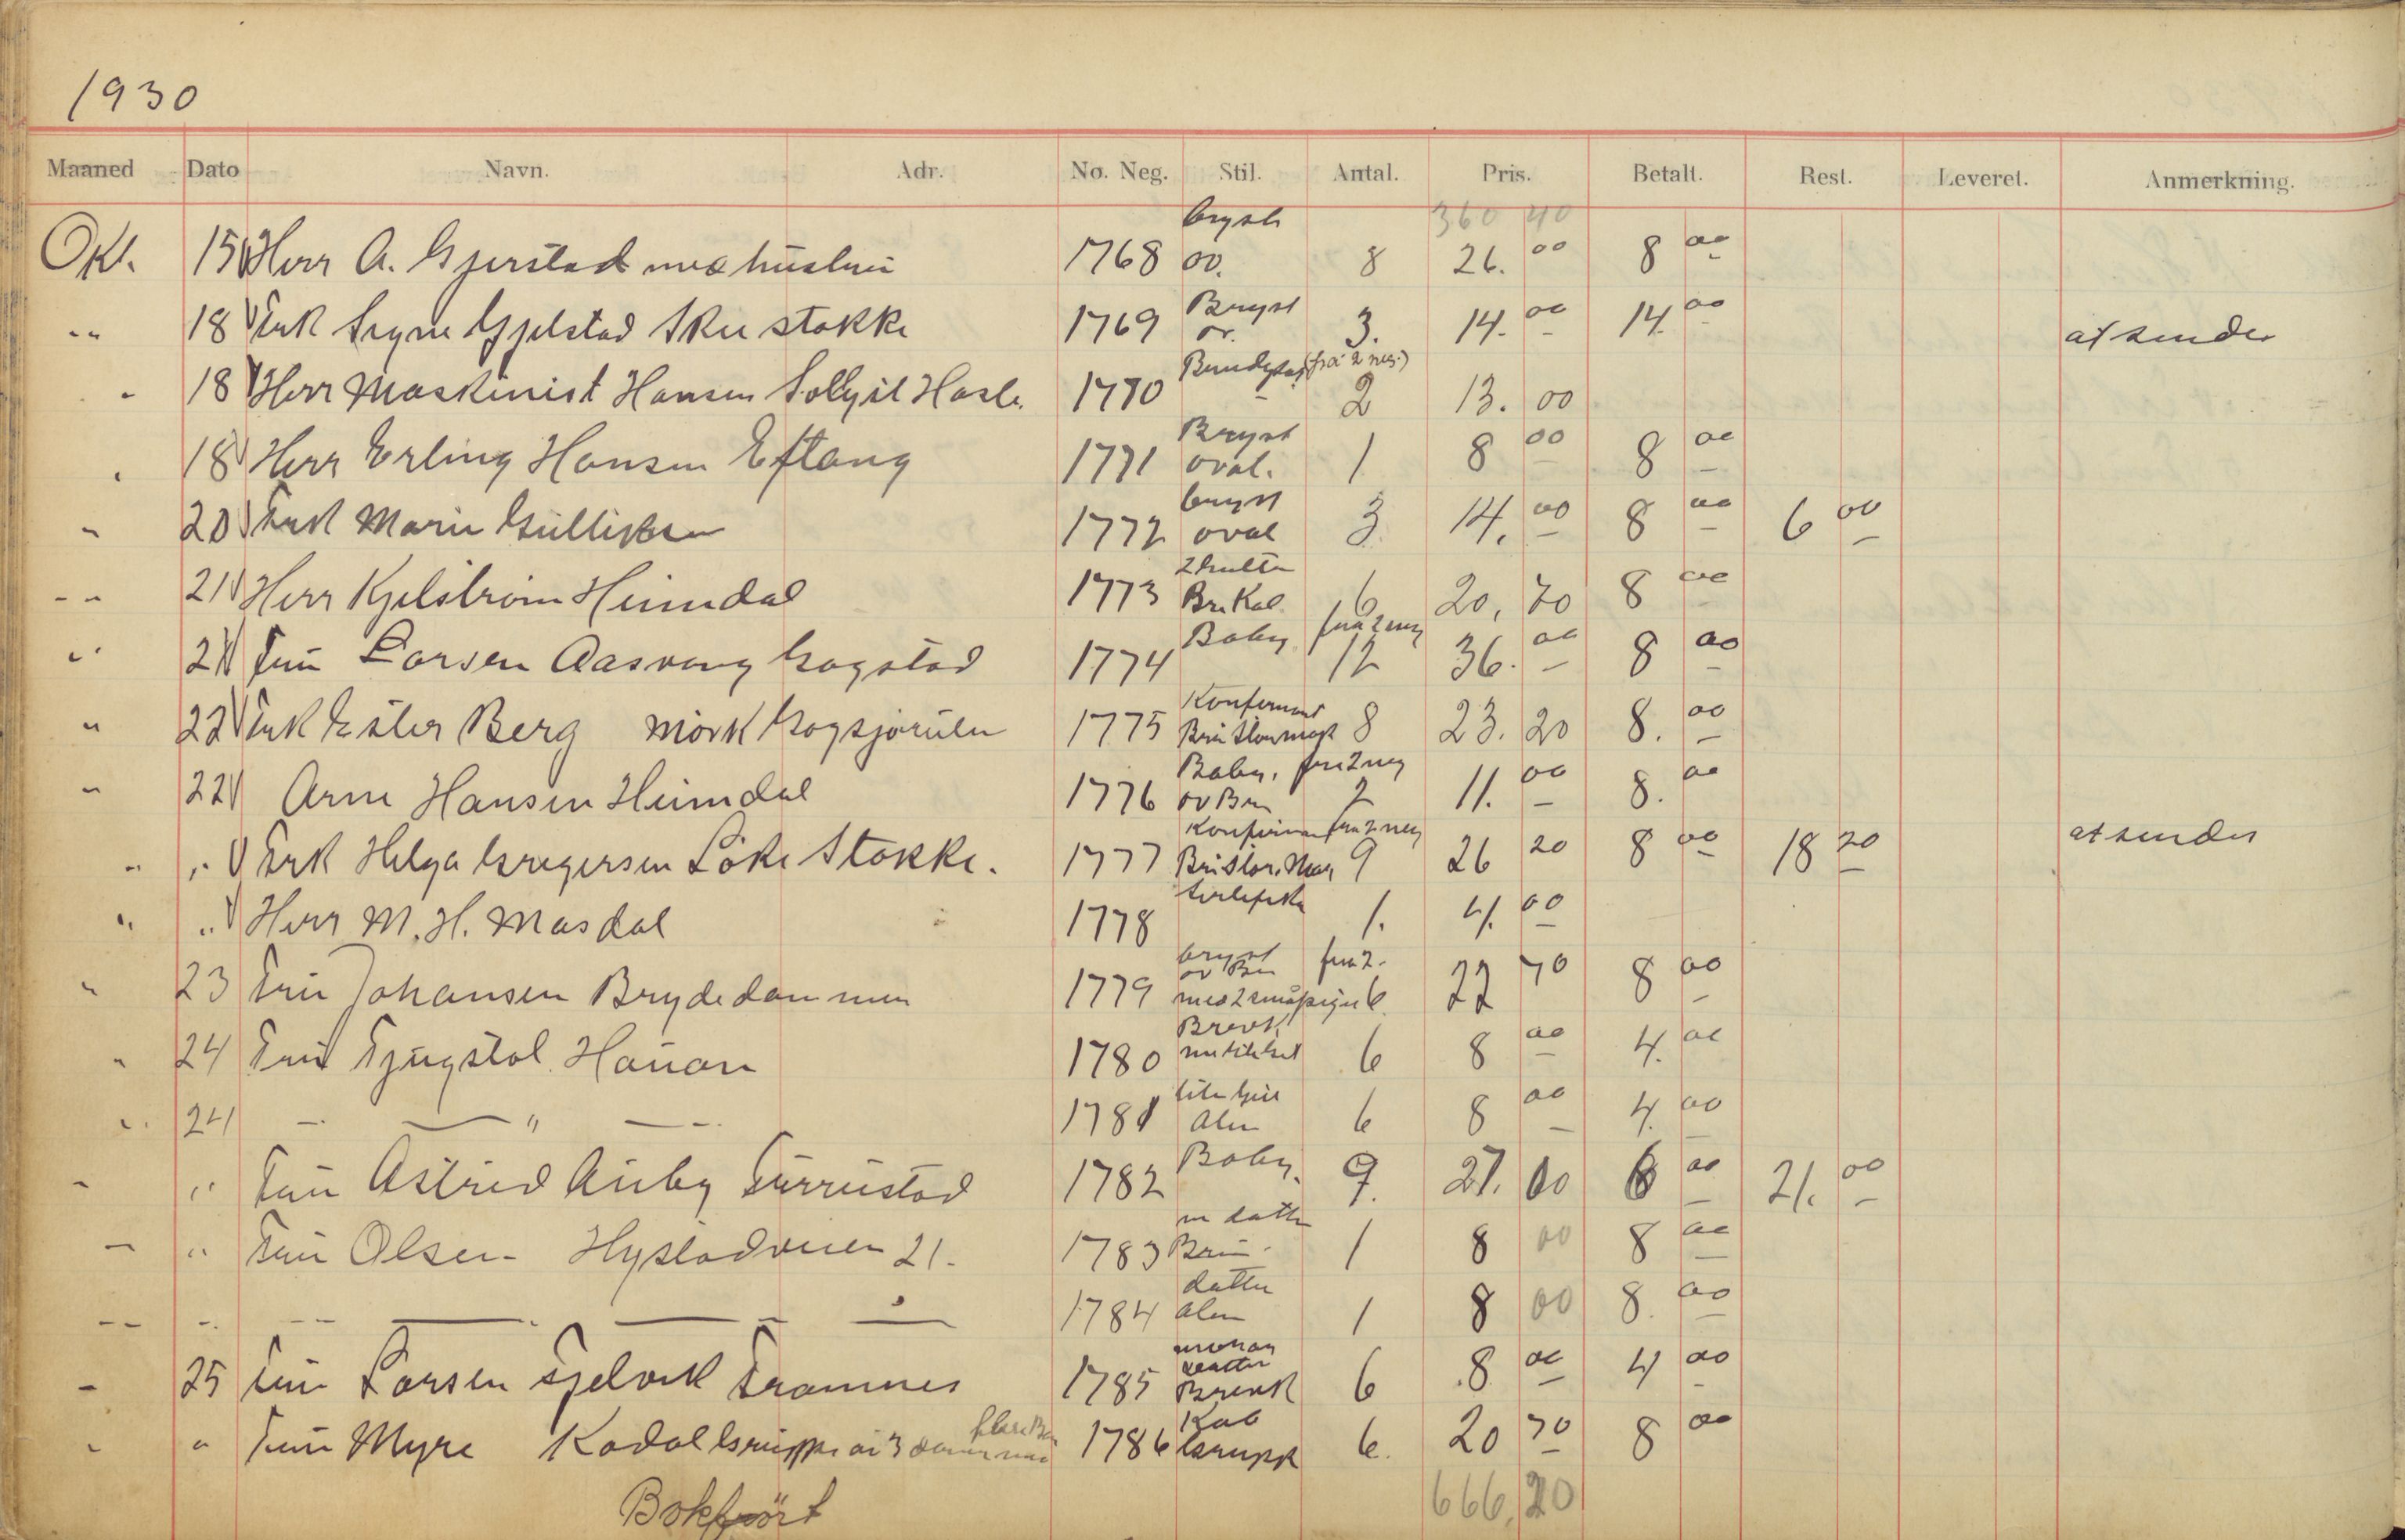 1930
Maaned Dato Navn. Adr. No. Neg. Stil. Antal. Pris. Betalt. Rest. Leveret. Anmerkning.
360 40
Okt. 15 Herr A. Gjerstad med hustru 1768 bryst ov. 8 26. 00 8 00
" 18 Frk Signe Gjelstad Skee stokke 1769 Bryst ov. 3. 14. 00 14. 00 at sendes
" 18 Herr Maskinist Hansen Solbyit Hasle. 1770 (fra 2 neg.) 2 13. 00
" 18 Herr Erling Hansen Eftang 1771 Bryst oval. 1 8 00 8 00
" 20 Frk Marie Gulliksen 1772 bryst oval 3 14. 00 8 00 6 00
" 21 Herr Kjelstrøm Heimdal 1773 Br. Kab 6 20, 70 8 00
" 21 Fru Larsen Aasvang Gogstad 1774 Baby fra 2 neg 12 36. 00 8 00
" 22 Frk Ester Berg Mørk Gogsjøruln 1775 Konfirmant 8 23. 20 8. 00
" 22 Arne Hansen Heimdal 1776 Baby, fra 2 neg ov Br 2 11. 00 8. 00
" " Frk Helga Gregersen Løke Stokke. 1777 fra 2 neg 9 26 20 8 00 18 20 at sendes
" " Herr M. H. Masdal 1778 1. 4. 00
" 23 Fru Johansen Brydedammen 1779 bryst ov Br fra 2. med 2 småpiger 6 22 70 8 00
" 24 Fru Tjugstol Hauan 1780 Brevk 6 8 00 4. 00
" 24 — " — 1781 Alm 6 8 00 4. 00
" " Fru Astrid Auby Furrustad 1782 Baby. 9. 27. 00 6 00 21. 00
" " Fru Olsen Hystadveien 21. 1783 m datter 1 8 00 8 00
" " — — — 1784 datter alm 1 8 00 8. 00
" 25 Fru Larsen Fjelvik Framnes 1785 datter Brevk 6 8 00 4 00
" " Fru Myre Kodal Gruppe av 3 damer 1786 Kab Grupp 6. 20 70 8 00
Bokført 666,20